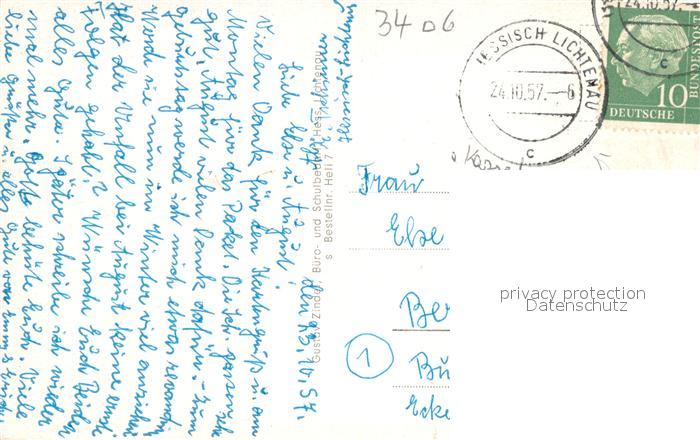 34 D 6
HESSISCH LICHTENAU
24.10.57.-6
c
24.10.57.
c
10
DEUTSCHE
BUNDESPOST
Frau
Else
Be
1
Bü
Ecke
privacy protection
Datenschutz
Gustav Zinder, Büro- und Schulbedarf, Hess. Lichtenau
s Bestellnr. Heli 7
den 23.10.57.
Liebe Else u. August!
Vielen Dank für den Kartengruß u. am
Montag für das Paket. Die ich passen
gut, August vielen Dank dafür. - Zum
Geburtstag werde ich mich etwas
Werde sie nun im Winter viel anziehen
Hat der Unfall bei August keine
Folgen gehabt? Wünsche Euch Beiden
alles Gute. Später schreibe ich wieder
mal mehr. Gott behüte Euch. Viele
liebe Grüße u. alles Gute von